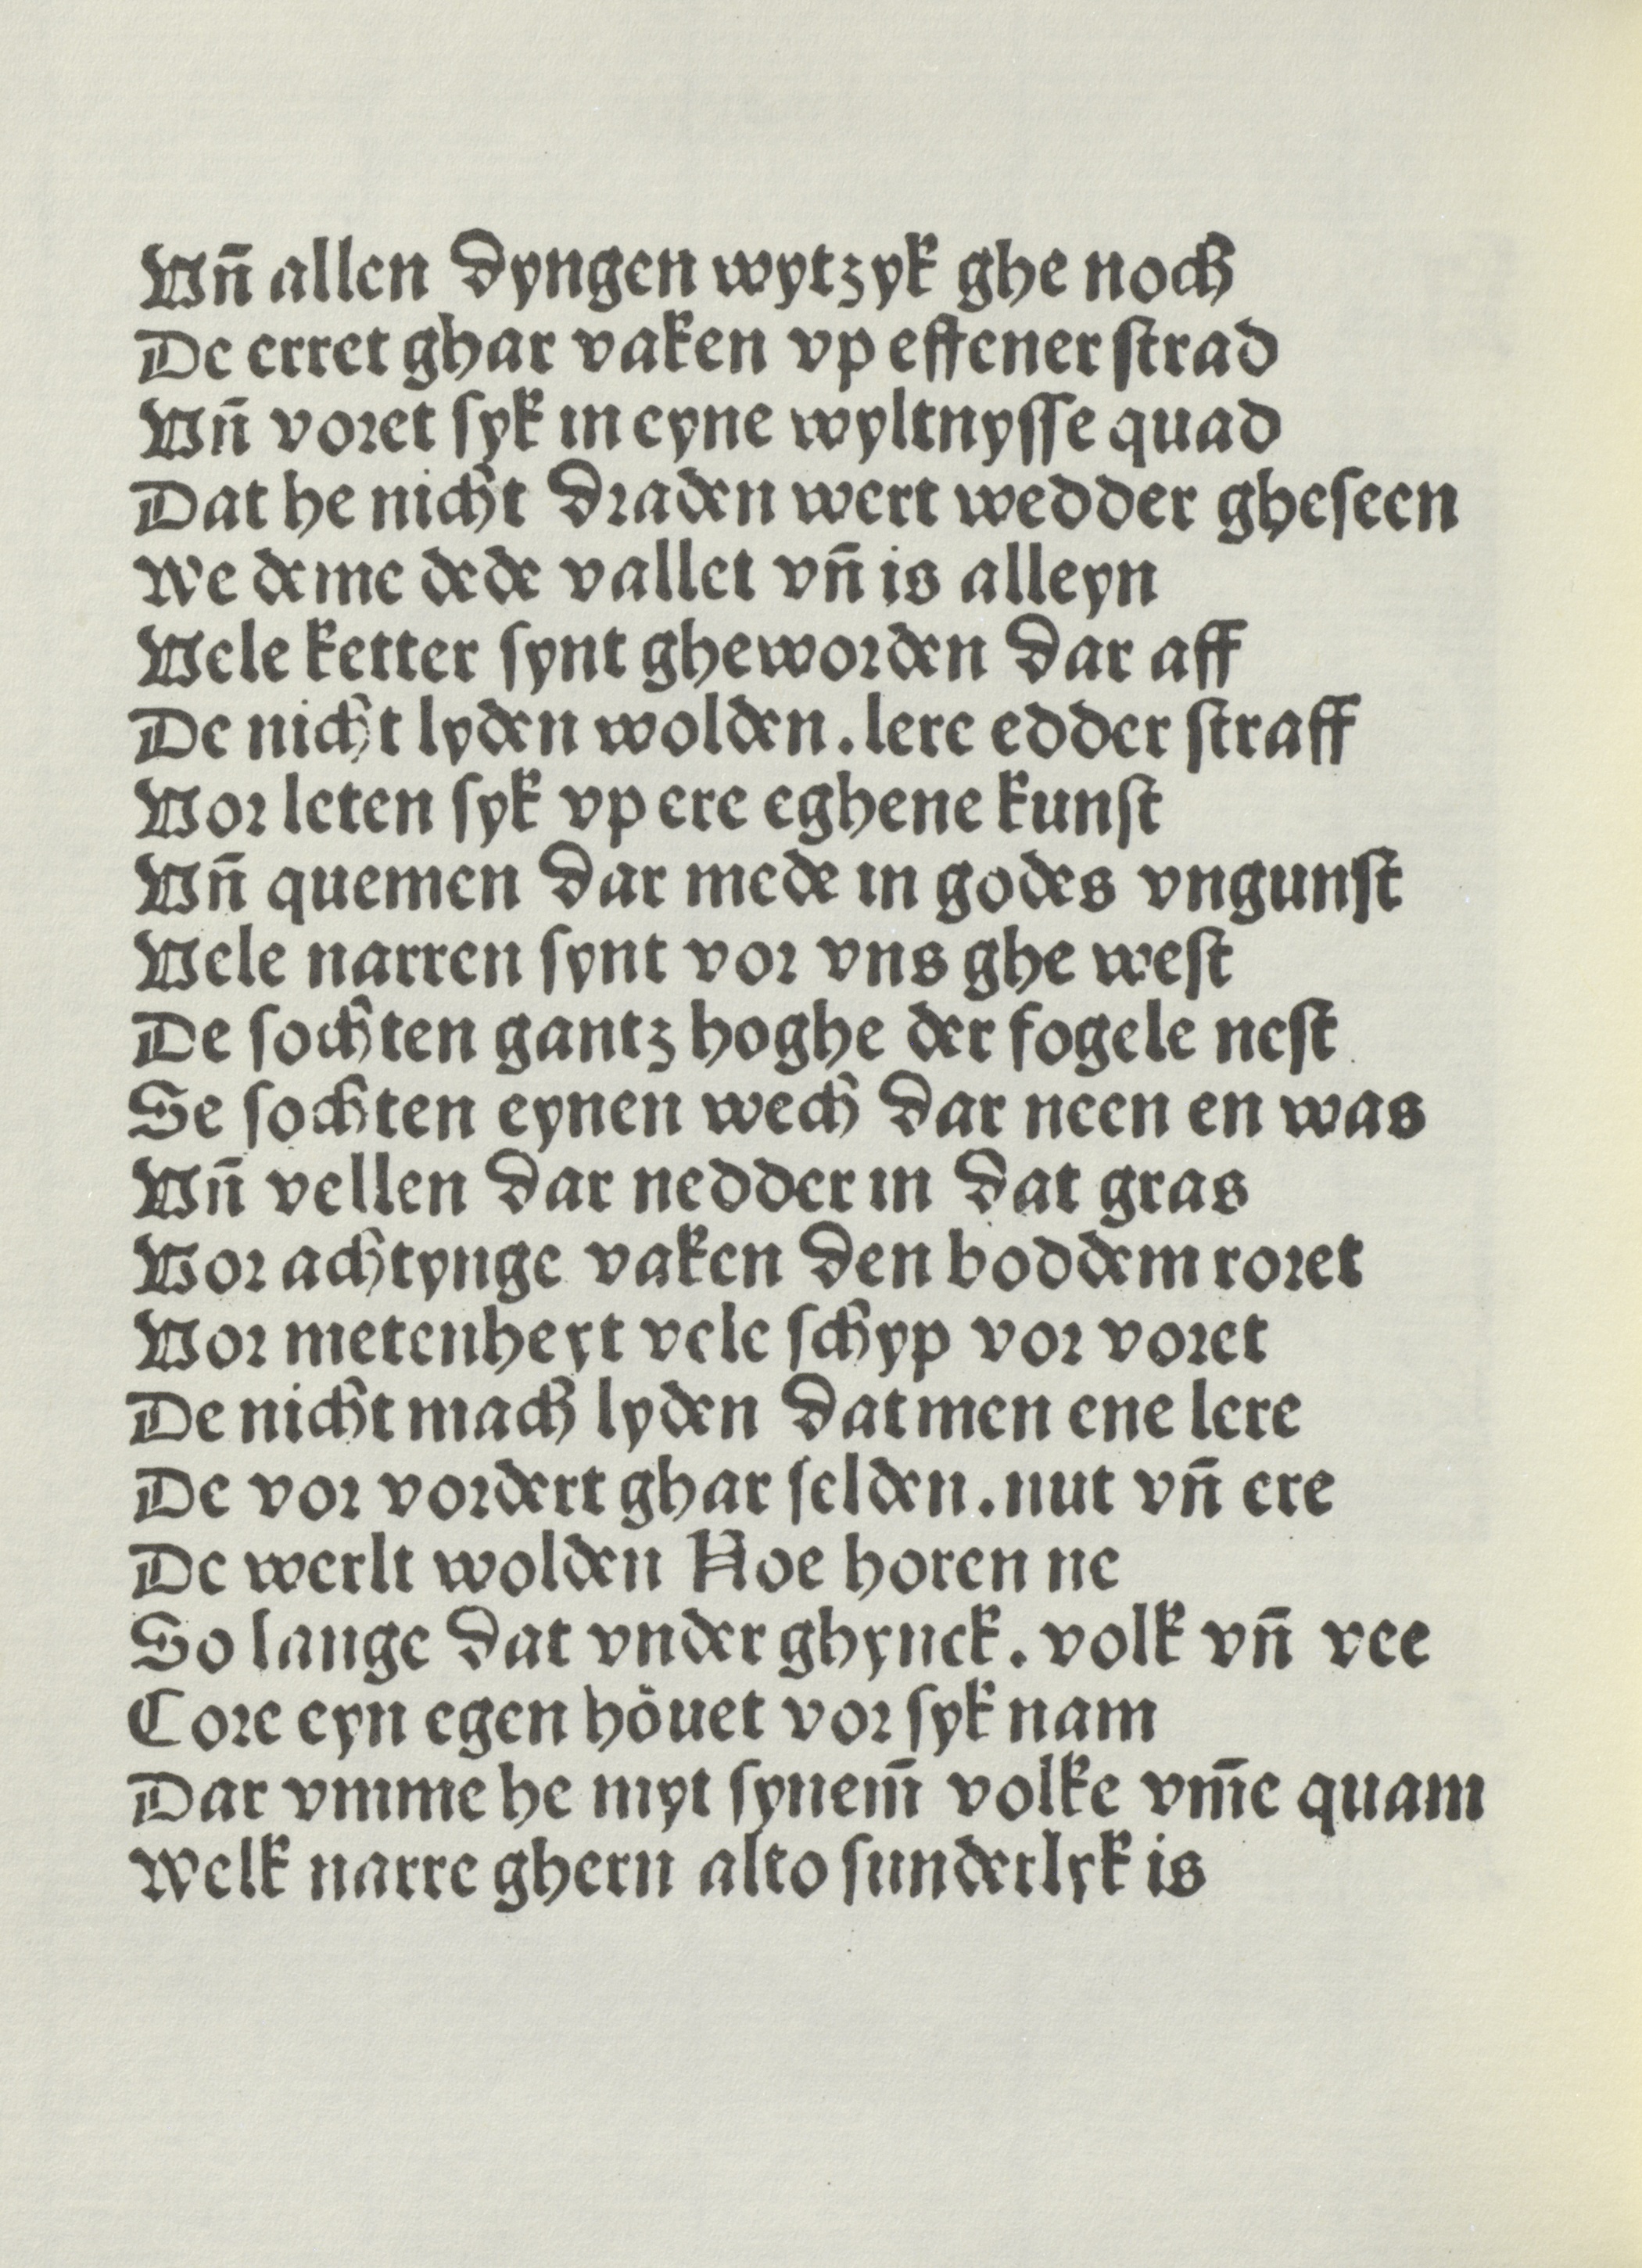 Vn̄ allen dyngen wytzyk ghe noch
De erret ghar vaken vp effener strad
Vn̄ voret syk in eyne wyltnysse quad
Dat he nicht draden wert wedder gheseen
We deme dede vallet vn̄ is alleyn
Vele ketter synt gheworden dar aff
De nicht lyden wolden. lere edder straff
Vor leten syk vp ere eghene kunst
Vn̄ quemen dar mede in godes vngunst
Vele narren synt vor vns ghe west
De sochten gantz hoghe der fogele nest
Se sochten eynen wech dar neen en was
Vn̄ vellen dar nedder in dat gras
Vor achtynge vaken den boddem roret
Vor metenheyt vele schyp vor voret
De nicht mach lyden dat men ene lere
De vor vordert ghar selden. nut vn̄ ere
De werlt wolden Noe horen ne
So lange dat vnder ghynck. volk vn̄ vee
Core eyn egen höuet vor syk nam
Dar vmme he myt synem̄ volke vm̄e quam
Welk narre ghern alto sunderlyk is